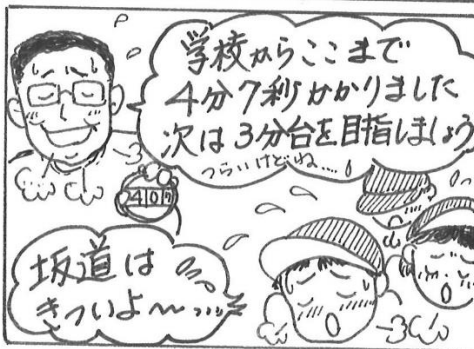 学校からここまで
4分7秒かかりました
次は3分台を目指しましょう
つらいけどね……
407
坂道は
きついよ〜……